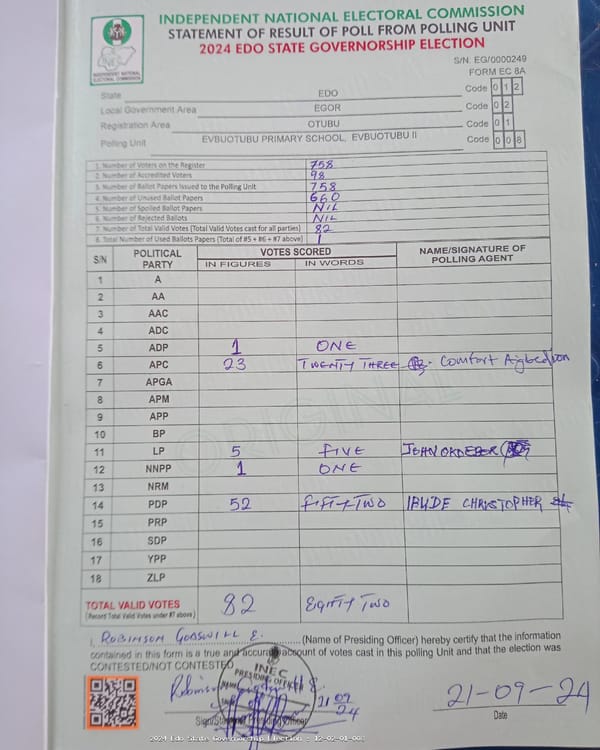 INDEPENDENT NATIONAL ELECTORAL COMMISSION
STATEMENT OF RESULT OF POLL FROM POLLING UNIT
2024 EDO STATE GOVERNORSHIP ELECTION
INEC
INDEPENDENT NATIONAL ELECTORAL COMMISSION
S/N. EG/0000249
FORM EC 8A
State EDO Code 0 1 2
Local Government Area EGOR Code 0 2
Registration Area OTUBU Code 0 1
Polling Unit EVBUOTUBU PRIMARY SCHOOL, EVBUOTUBU II Code 0 0 8
1. Number of Voters on the Register 758
2. Number of Accredited Voters 98
3. Number of Ballot Papers Issued to the Polling Unit 758
4. Number of Unused Ballot Papers 660
5. Number of Spoiled Ballot Papers NIL
6. Number of Rejected Ballots NIL
7. Number of Total Valid Votes (Total Valid Votes cast for all parties) 82
8. Total Number of Used Ballots Papers (Total of #5 + #6 + #7 above) 1
S/N POLITICAL PARTY VOTES SCORED NAME/SIGNATURE OF POLLING AGENT
IN FIGURES IN WORDS
1 A
2 AA
3 AAC
4 ADC
5 ADP 1 ONE
6 APC 23 TWENTY THREE Comfort
7 APGA
8 APM
9 APP
10 BP
11 LP 5 FIVE JOHN
12 NNPP 1 ONE
13 NRM
14 PDP 52 FIFTY TWO CHRISTOPHER
15 PRP
16 SDP
17 YPP
18 ZLP
TOTAL VALID VOTES 82 EGHTY TWO
(Record Total Valid Votes under #7 above)
I, ROBINSON GODSWILL E. (Name of Presiding Officer) hereby certify that the information
contained in this form is a true and accurate account of votes cast in this polling Unit and that the election was
CONTESTED/NOT CONTESTED
INEC
PRESIDING OFFICER
21 09 24
21-09-24
Date
2024 Edo State Governorship Election - 12-02-01-008